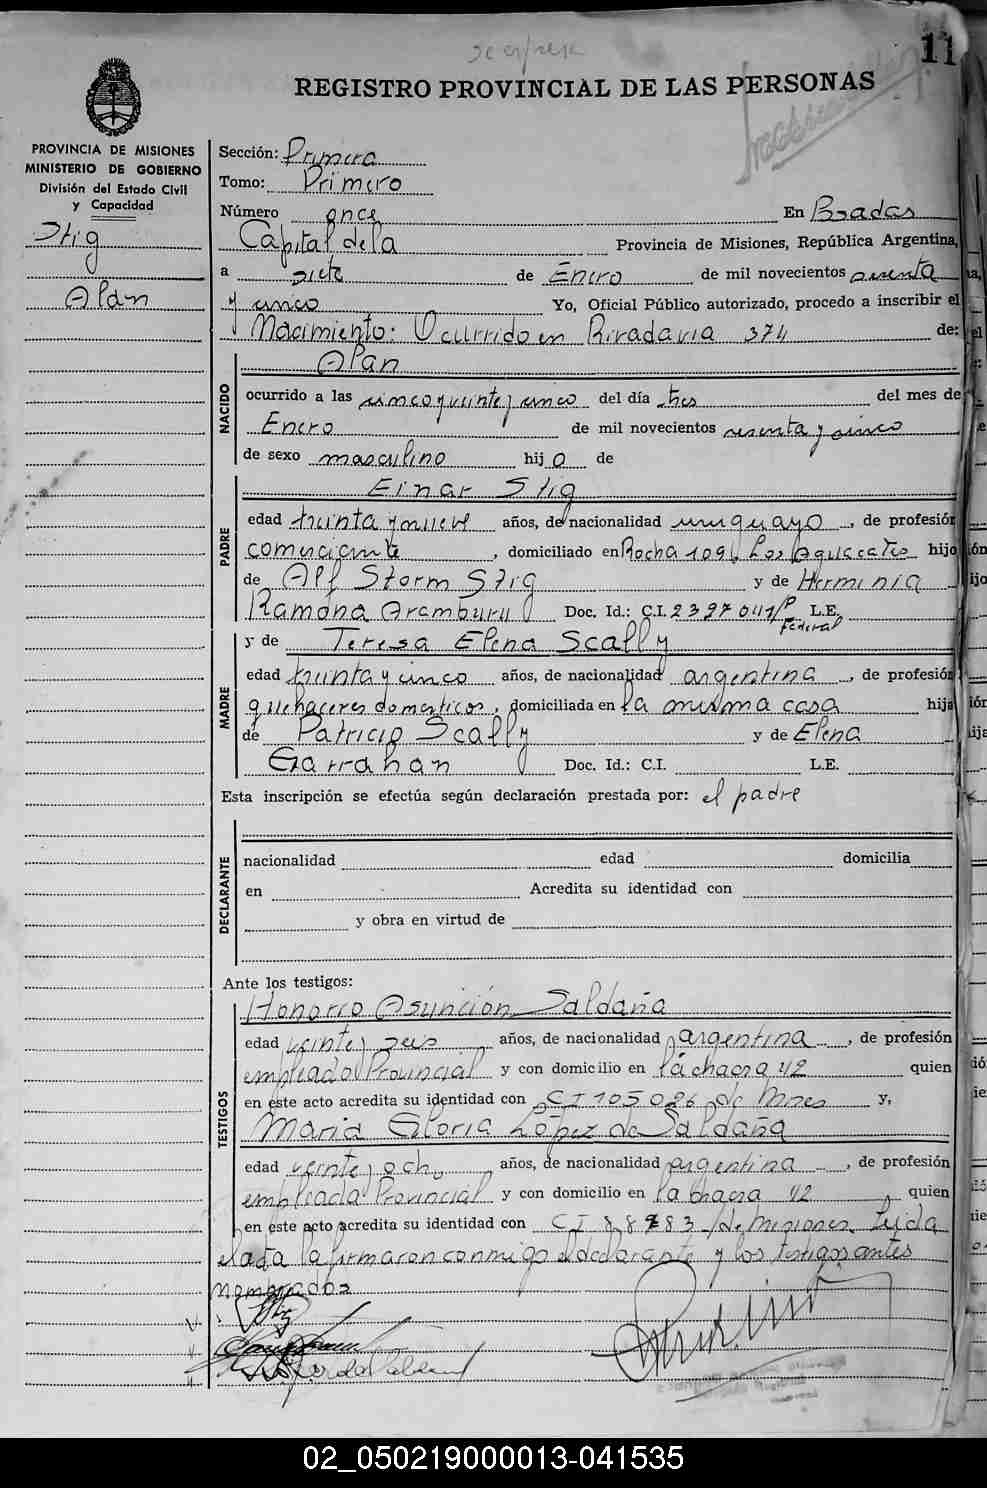 11
REGISTRO PROVINCIAL DE LAS PERSONAS
PROVINCIA DE MISIONES
MINISTERIO DE GOBIERNO
División del Estado Civil
y Capacidad
Stig
Alan
Sección: Primera
Tomo: Primero
Número once En Posadas
Capital de la Provincia de Misiones, República Argentina,
a siete de Enero de mil novecientos sesenta
y cinco Yo, Oficial Público autorizado, procedo a inscribir el
Nacimiento: Ocurrido en Rivadavia 374 de:
NACIDO
Alan
ocurrido a las cinco y veinte y cinco del día tres del mes de
Enero de mil novecientos sesenta y cinco
de sexo masculino hijo de
PADRE
Einar Stig
edad treinta y nueve años, de nacionalidad uruguayo, de profesión
comerciante, domiciliado en Rocha 1091 Los Aguacates hijo
de Alf Storm Stig y de Herminia
Ramona Aramburu Doc. Id.: C.I. 2397041/P L.E.
Federal
MADRE
y de Teresa Elena Scally
edad treinta y cinco años, de nacionalidad argentina, de profesión
quehaceres domesticos, domiciliada en la misma casa hija
de Patricio Scally y de Elena
Garrahan Doc. Id.: C.I. L.E.
Esta inscripción se efectúa según declaración prestada por: el padre
DECLARANTE
nacionalidad edad domicilia
en Acredita su identidad con
y obra en virtud de
Ante los testigos:
TESTIGOS
Honorio Asunción Saldaña
edad veinte y seis años, de nacionalidad argentina, de profesión
empleado Provincial y con domicilio en la chacra 42 quien
en este acto acredita su identidad con CI 105026 de Mnes y,
Maria Gloria López de Saldaña
edad veinte y ocho años, de nacionalidad argentina, de profesión
empleada Provincial y con domicilio en la chacra 42 quien
en este acto acredita su identidad con CI de Misiones Leida
el acta la firmaron conmigo el declarante y los testigos antes
nombrados
02_050219000013-041535